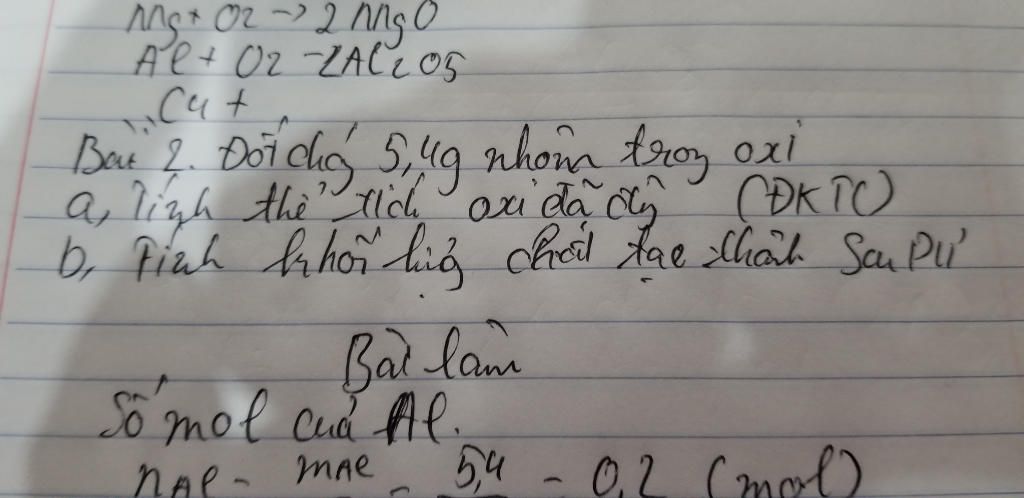 Mg + O2 -> 2 MgO
Al + O2 - 2Al2O5
Cu +
Bài 2. Đốt cháy 5,4g nhôm trong oxi
a, Tính thể tích oxi đã dùng (ĐKTC)
b, Tính khối lượng chất tạo thành sau PƯ
Bài làm
Số mol của Al.
nAl = mAl = 5,4 = 0,2 (mol)